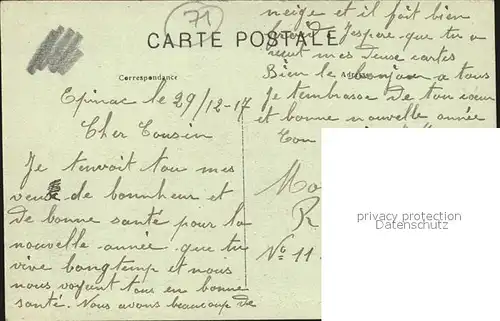 71
CARTE POSTALE
Correspondance
Epinac le 29/12-17
Cher Cousin
Je t'envoit tou mes
veux de bonnheur et
de bonne santé pour la
nouvelle année que tu
vive longtemp et nous
nous voyant tous en bonne
santé. Nous avons beaucoup de
neige et il fait bien
froid J'espere que tu a
recut mes deux cartes
Bien le bonjour a tous
Je t'embrasse de tou cœur
et bonne nouvelle année
Ton
Mo
R
No 11
privacy protection
Datenschutz